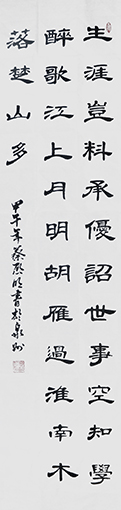 生涯豈料承優詔世事空知學
醉歌江上月明胡雁過淮南木
落楚山多
甲午年蔡啟明書於泉州